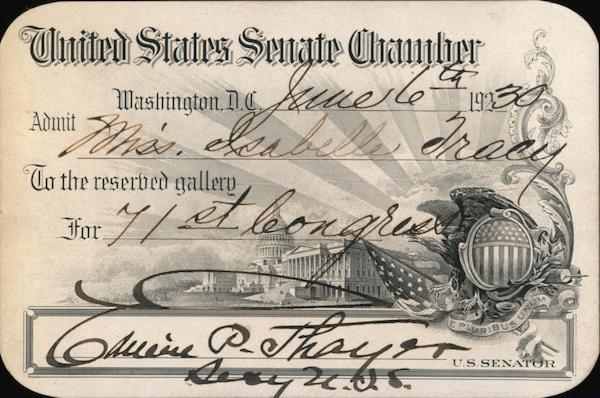 United States Senate Chamber
Washington, D.C. June 6th 1930
Admit Miss. Isabelle Tracy
To the reserved gallery
For 71st Congress
E PLURIBUS UNUM
Edwin P. Thayer
U.S. SENATOR
Secy U.S.S.